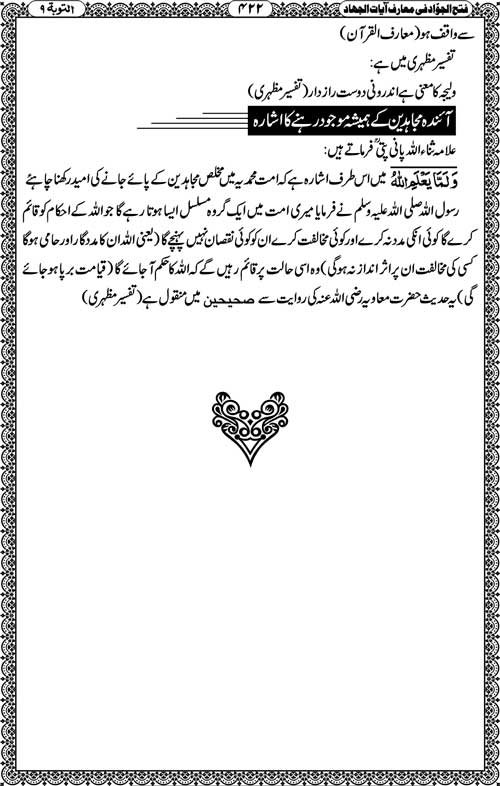 فتح الجوّاد فی معارف آیات الجهاد ۴۲۲ التوبة ۹
سے واقف ہو (معارف القرآن)
تفسیر مظہری میں ہے:
ولیجہ کا معنی ہے اندرونی دوست رازدار (تفسیر مظہری)
آئندہ مجاہدین کے ہمیشہ موجود رہنے کا اشارہ
علامہ ثناء اللہ پانی پتیؒ فرماتے ہیں:
وَلَمَّا یَعْلَمِ اللّٰهُ میں اس طرف اشارہ ہے کہ امت محمدیہ میں مخلص مجاہدین کے پائے جانے کی امید رکھنا چاہئے
رسول اللہ صلی اللہ علیہ وسلم نے فرمایا میری امت میں ایک گروہ مسلسل ایسا ہوتا رہے گا جو اللہ کے احکام کو قائم
کرے گا کوئی انکی مدد نہ کرے اور کوئی مخالفت کرے ان کو کوئی نقصان نہیں پہنچے گا (یعنی اللہ ان کا مددگار اور حامی ہوگا
کسی کی مخالفت ان پر اثر انداز نہ ہوگی) وہ اسی حالت پر قائم رہیں گے کہ اللہ کا حکم آجائے گا (قیامت برپا ہو جائے
گی) یہ حدیث حضرت معاویہ رضی اللہ عنہ کی روایت سے صحیحین میں منقول ہے (تفسیر مظہری)